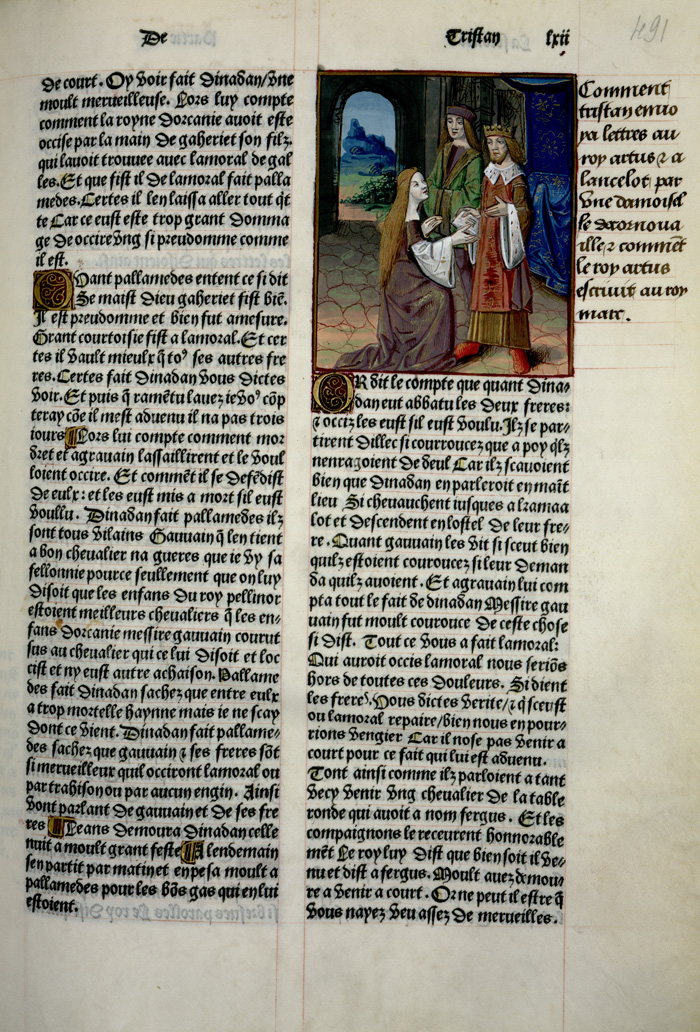 De
Tristan lxii
491
de court. Oy voir fait Dinadan/vne
moult merueilleuse. Lors luy compte
comment la royne Dorcanie auoit este
occise par la main de gaheriet son filz.
qui lauoit trouuee auec lamoral de gal
les. Et que fist il de lamoral fait palla
medes. Certes il len laissa aller tout q̄t
te Car ce eust este trop grant domma
ge de occire vng si preudomme comme
il est.
Quant pallamedes entent ce si dit
Se maist Dieu gaheriet fist biē.
Il est preudomme et bien fut amesure.
Grant courtoisie fist a lamoral. Et cer
tes il vault mieulx q̄ toꝰ ses autres fre
res. Certes fait Dinadan vous dictes
voir. Et puis q̄ ramētu lauez ie voꝰ cōp
teray cōe il mest aduenu il na pas trois
iours Lors lui compte comment mor
dret et agrauain lassaillirent et le voul
loient occire. Et commēt il se defēdist
de eulx: et les eust mis a mort sil eust
voullu. Dinadan fait pallamedes ilz
sont tous vilains Gauuain q̄ len tient
a bon cheualier na gueres que ie vy sa
fellonnie pource seullement que on luy
disoit que les enfans du roy pellinor
estoient meilleurs cheualiers q̄ les en-
fans dorcanie messire gauuain courut
sus au cheualier qui ce lui disoit et loc
cist et ny eust autre achaison. Pallame
des fait Dinadan sachez que entre eulx
a trop mortelle haynne mais ie ne scay
dont ce vient. Dinadan fait pallame-
des sachez que gauuain ⁊ ses freres sōt
si merueilleux quil occiront lamoral ou
par trahison ou par aucun engin. Ainsi
vont parlant de gauuain et de ses fre
res Leans demoura Dinadan celle
nuit a moult grant feste A lendemain
sen partit par matin et en pesa moult a
pallamedes pour les bōs gas qui en lui
estoient.
Comment
tristan enuo
ya lettres au
roy artus ⁊ a
lancelot par
vne damoisel
le de cornoua
ille ⁊ commēt
le roy artus
escriuit au roy
marc.
OR dit le compte que quant Dina-
dan eut abbatu les deux freres:
⁊ occiz les eust sil eust voulu. Ilz se par-
tirent dillec si courroucez que a poy q̄lz
nenragoient de deul Car ilz scauoient
bien que Dinadan en parleroit en maīt
lieu Si cheuauchent iusques a kramaa
lot et descendent en lostel de leur fre-
re. Quant gauuain les vit si sceut bien
quilz estoient couroucez si leur deman
da quilz auoient. Et agrauain lui com
pta tout le fait de dinadan Messire gau
uain fut moult courouce de ceste chose
si dist. Tout ce vous a fait lamoral:
Qui auroit occis lamoral nous seriōs
hors de toutes ces douleurs. Si dient
les freres. Vous dictes verite/⁊ q̄ sceust
ou lamoral repaire/bien nous en pour-
rions vengier Car il nose pas venir a
court pour ce fait qui lui est aduenu.
Tont ainsi comme ilz parloient a tant
vecy venir vng cheualier de la table
ronde qui auoit a nom fergus. Et les
compaignons le receurent honnorable
mēt Le roy luy dist que bien soit il ve-
nu et dist a fergus. Moult auez demou-
re a venir a court. Or ne peut il estre q̄
vous nayez veu assez de merueilles.